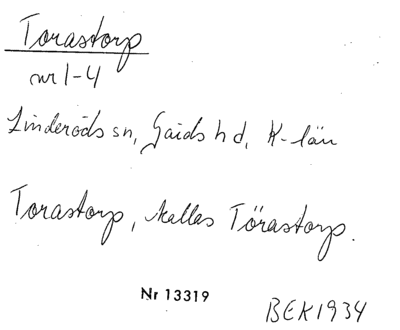 Torastorp
nr 1-4
Linderöds sn, Gärds hd, K-län
Torastorp, kallas Törastorp.
Nr 13319
BEK 1934